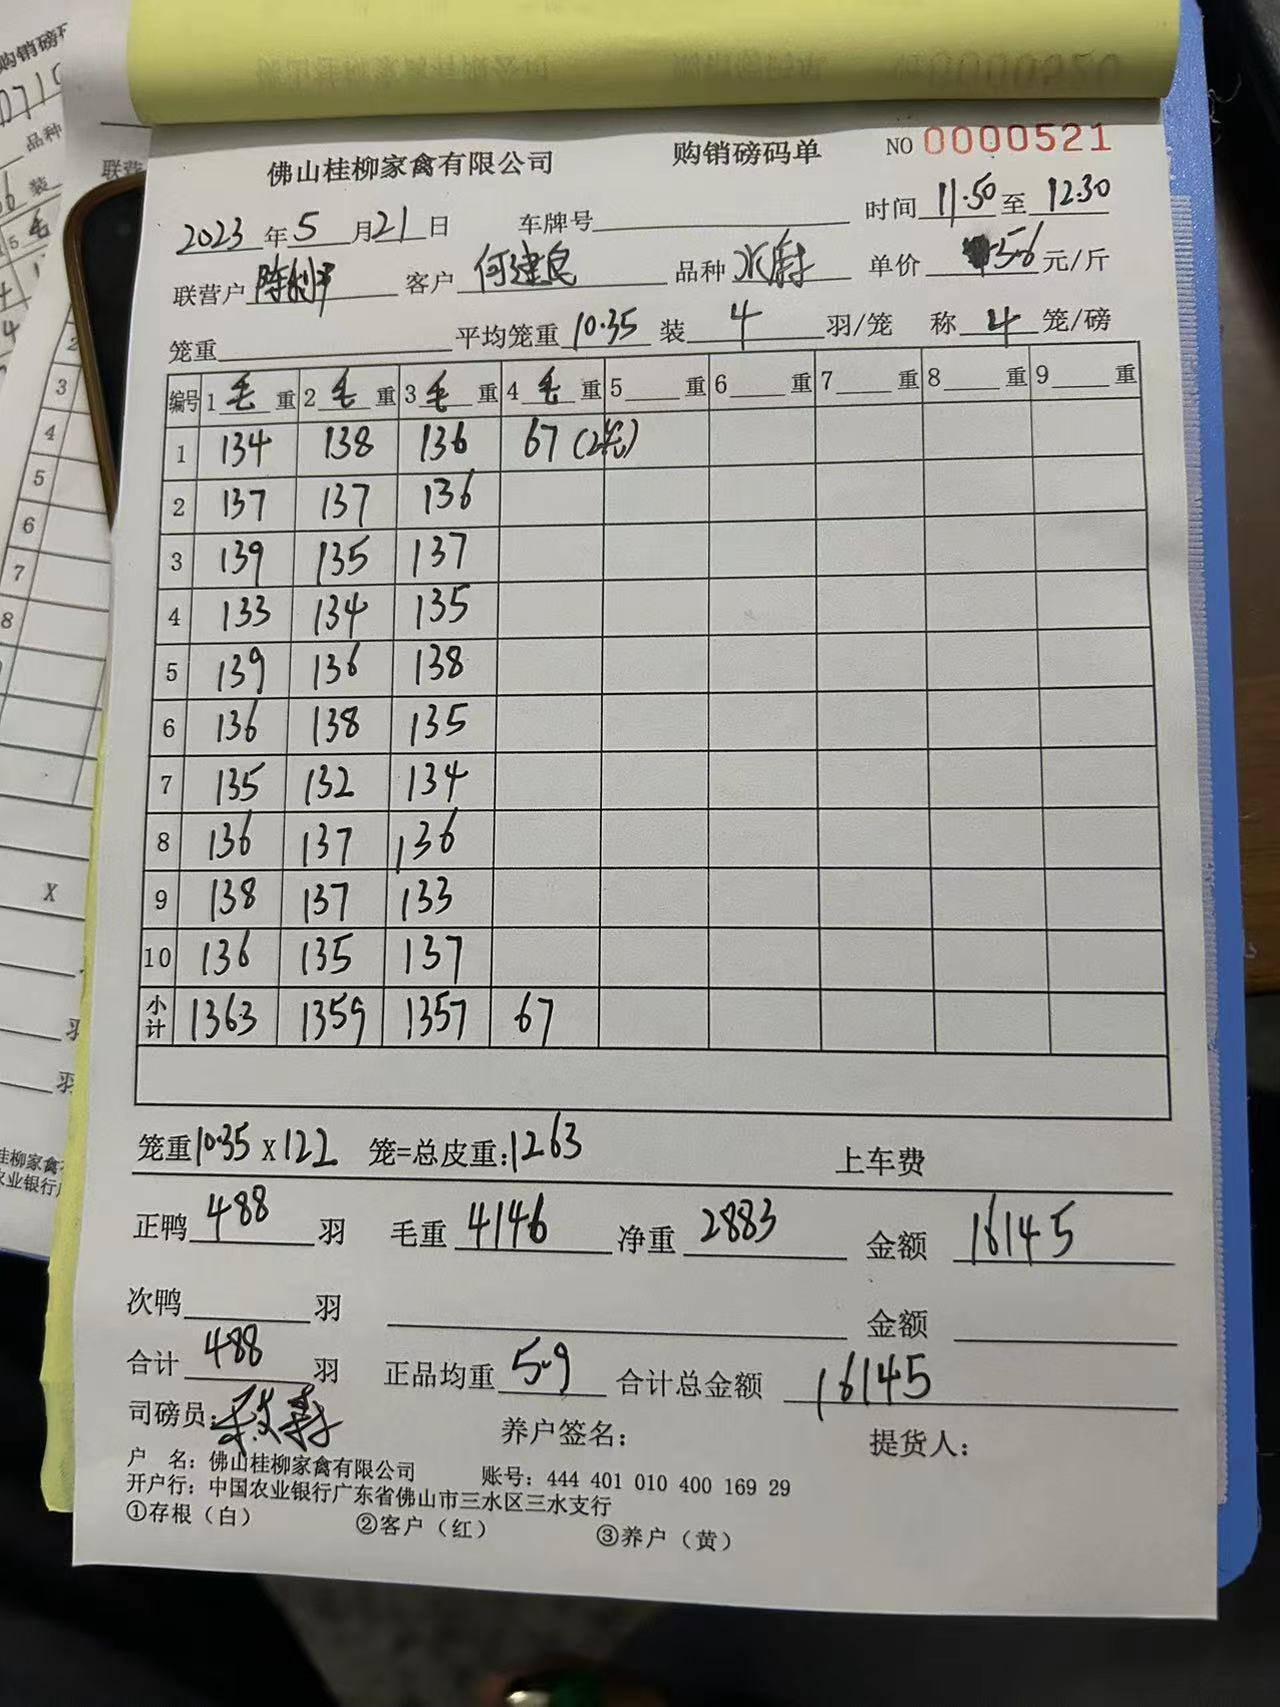 佛山桂柳家禽有限公司 购销磅码单 NO 0000521
2023年5月21日 车牌号 时间 11.50 至 12.30
联营户 陈利平 客户 何建良 品种 水麻 单价 5.6 元/斤
笼重 平均笼重 10.35 装 4 羽/笼 称 4 笼/磅
编号 1毛重 2毛重 3毛重 4毛重 5 重 6 重 7 重 8 重 9 重
1 134 138 136 67(2笼)
2 137 137 136
3 139 135 137
4 133 134 135
5 139 136 138
6 136 138 135
7 135 132 134
8 136 137 136
9 138 137 133
10 136 135 137
小计 1363 1359 1357 67
笼重10.35 X 122 笼=总皮重:1263 上车费
正鸭 488 羽 毛重 4146 净重 2883 金额 16145
次鸭 羽 金额
合计 488 羽 正品均重 5.9 合计总金额 16145
司磅员: 养户签名: 提货人:
户 名: 佛山桂柳家禽有限公司 账号: 444 401 010 400 169 29
开户行: 中国农业银行广东省佛山市三水区三水支行
①存根（白） ②客户（红） ③养户（黄）